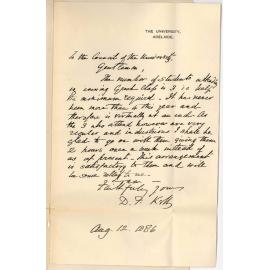 THE UNIVERSITY,
ADELAIDE.
To the Council of the University
Gentlemen
The number of students
in evening Greek Class is 3 is
the minimum required. It has never
been more than 4 this year and
therefore is virtually at an end. As
the 3 who attend however are very
regular and industrious I shall be
glad to go on with them giving them
2 hours once a week instead of
as at present. This arrangement
is satisfactory to them and will
be some relief to me.
Faithfully yours
D. F. Kelly
Aug 12. 1886